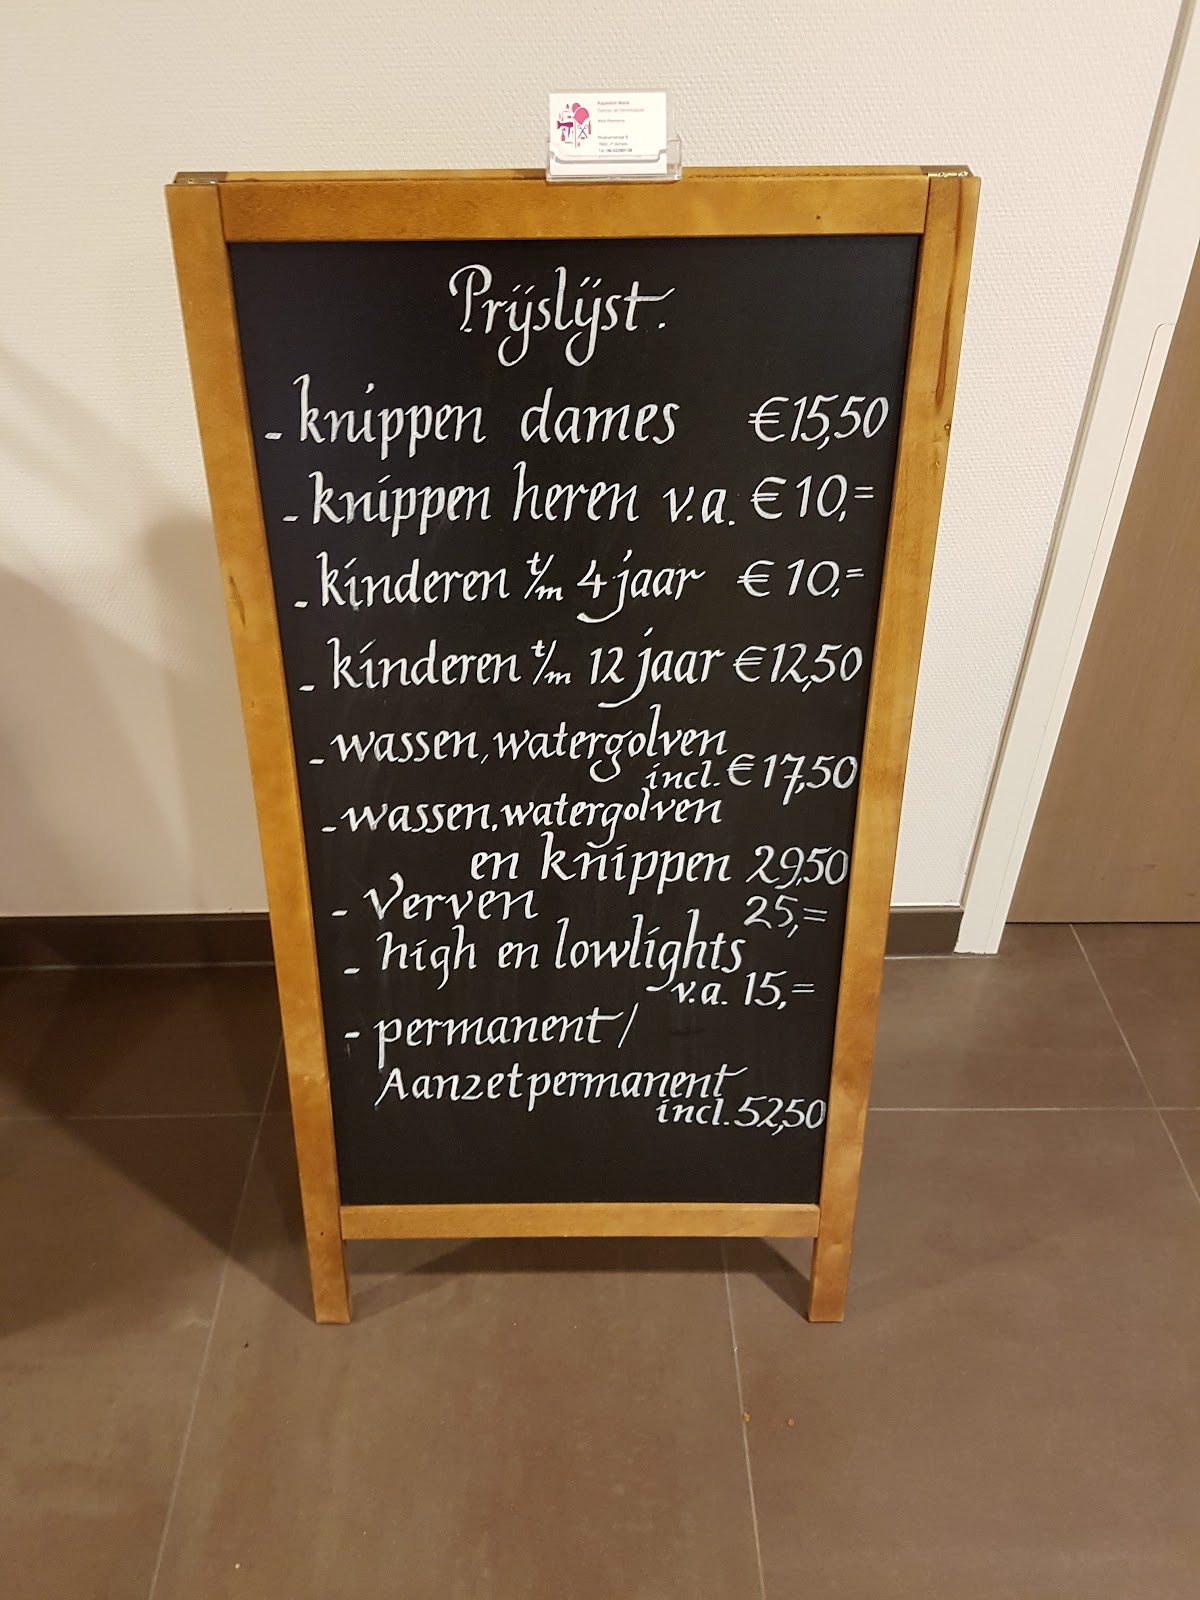 Kapsalon Maria
Dames- en herenkapper
Prijslijst.
- knippen dames €15,50
- knippen heren v.a. €10,=
- kinderen t/m 4 jaar €10,=
- kinderen t/m 12 jaar €12,50
- wassen, watergolven
incl. €17,50
- wassen, watergolven
en knippen 29,50
- Verven 25,=
- high en lowlights
v.a. 15,=
- permanent /
Aanzetpermanent
incl. 52,50